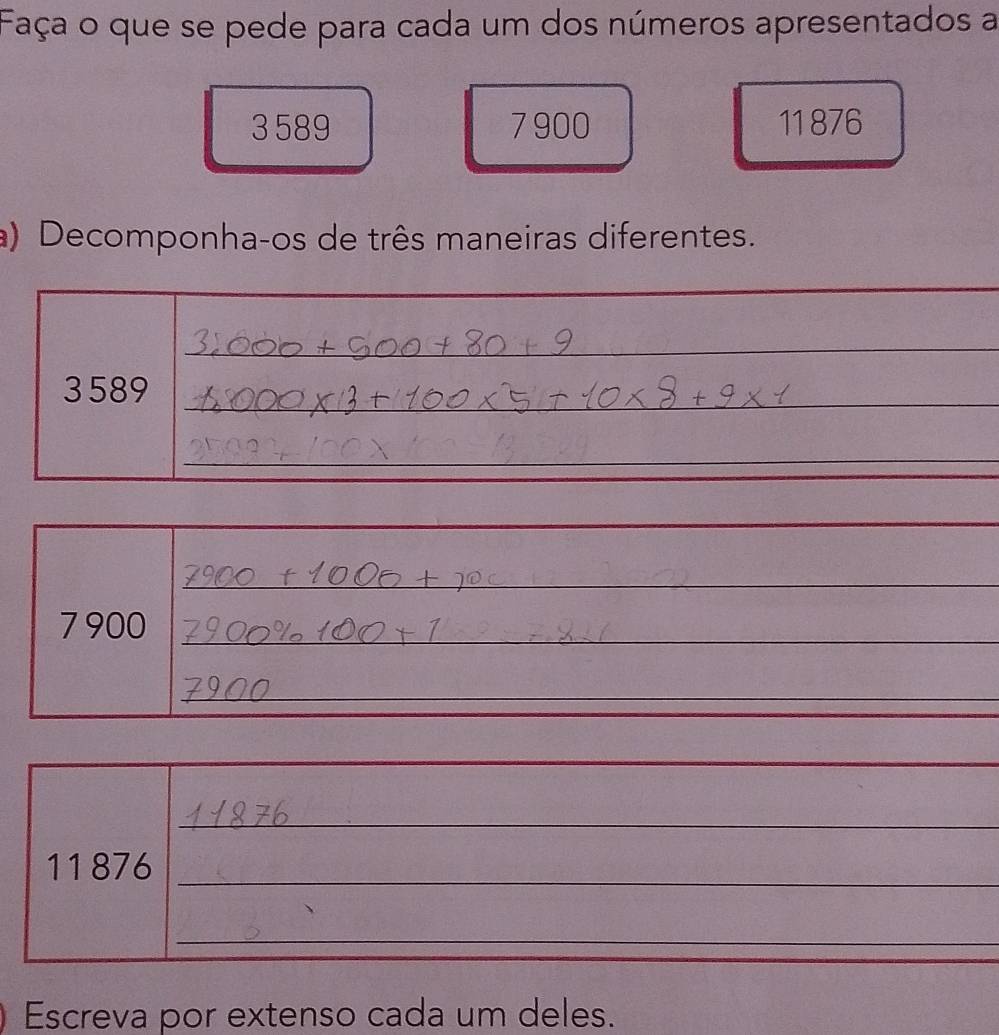 Faça o que se pede para cada um dos números apresentados a
3 589 7 900 11 876
a) Decomponha-os de três maneiras diferentes.
3.000 + 500 + 80 + 9
3 589
1.000 x 3 + 100 x 5 + 10 x 8 + 9 x 1
7900 + 1000 +
7 900
7900% 100 + 1
7900
11876
11 876
) Escreva por extenso cada um deles.